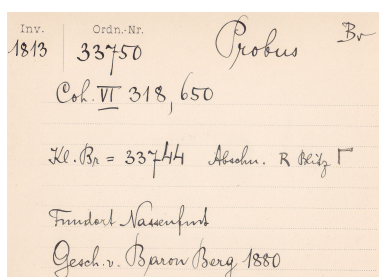 Inv. Ordn.-Nr. Probus Br
1813 33750
Coh. VI 318, 650
Kl. Br = 33744 Abschn. R Blitz Γ
Fundort Nassenfurt
Gesch. v. Baron Berg 1880